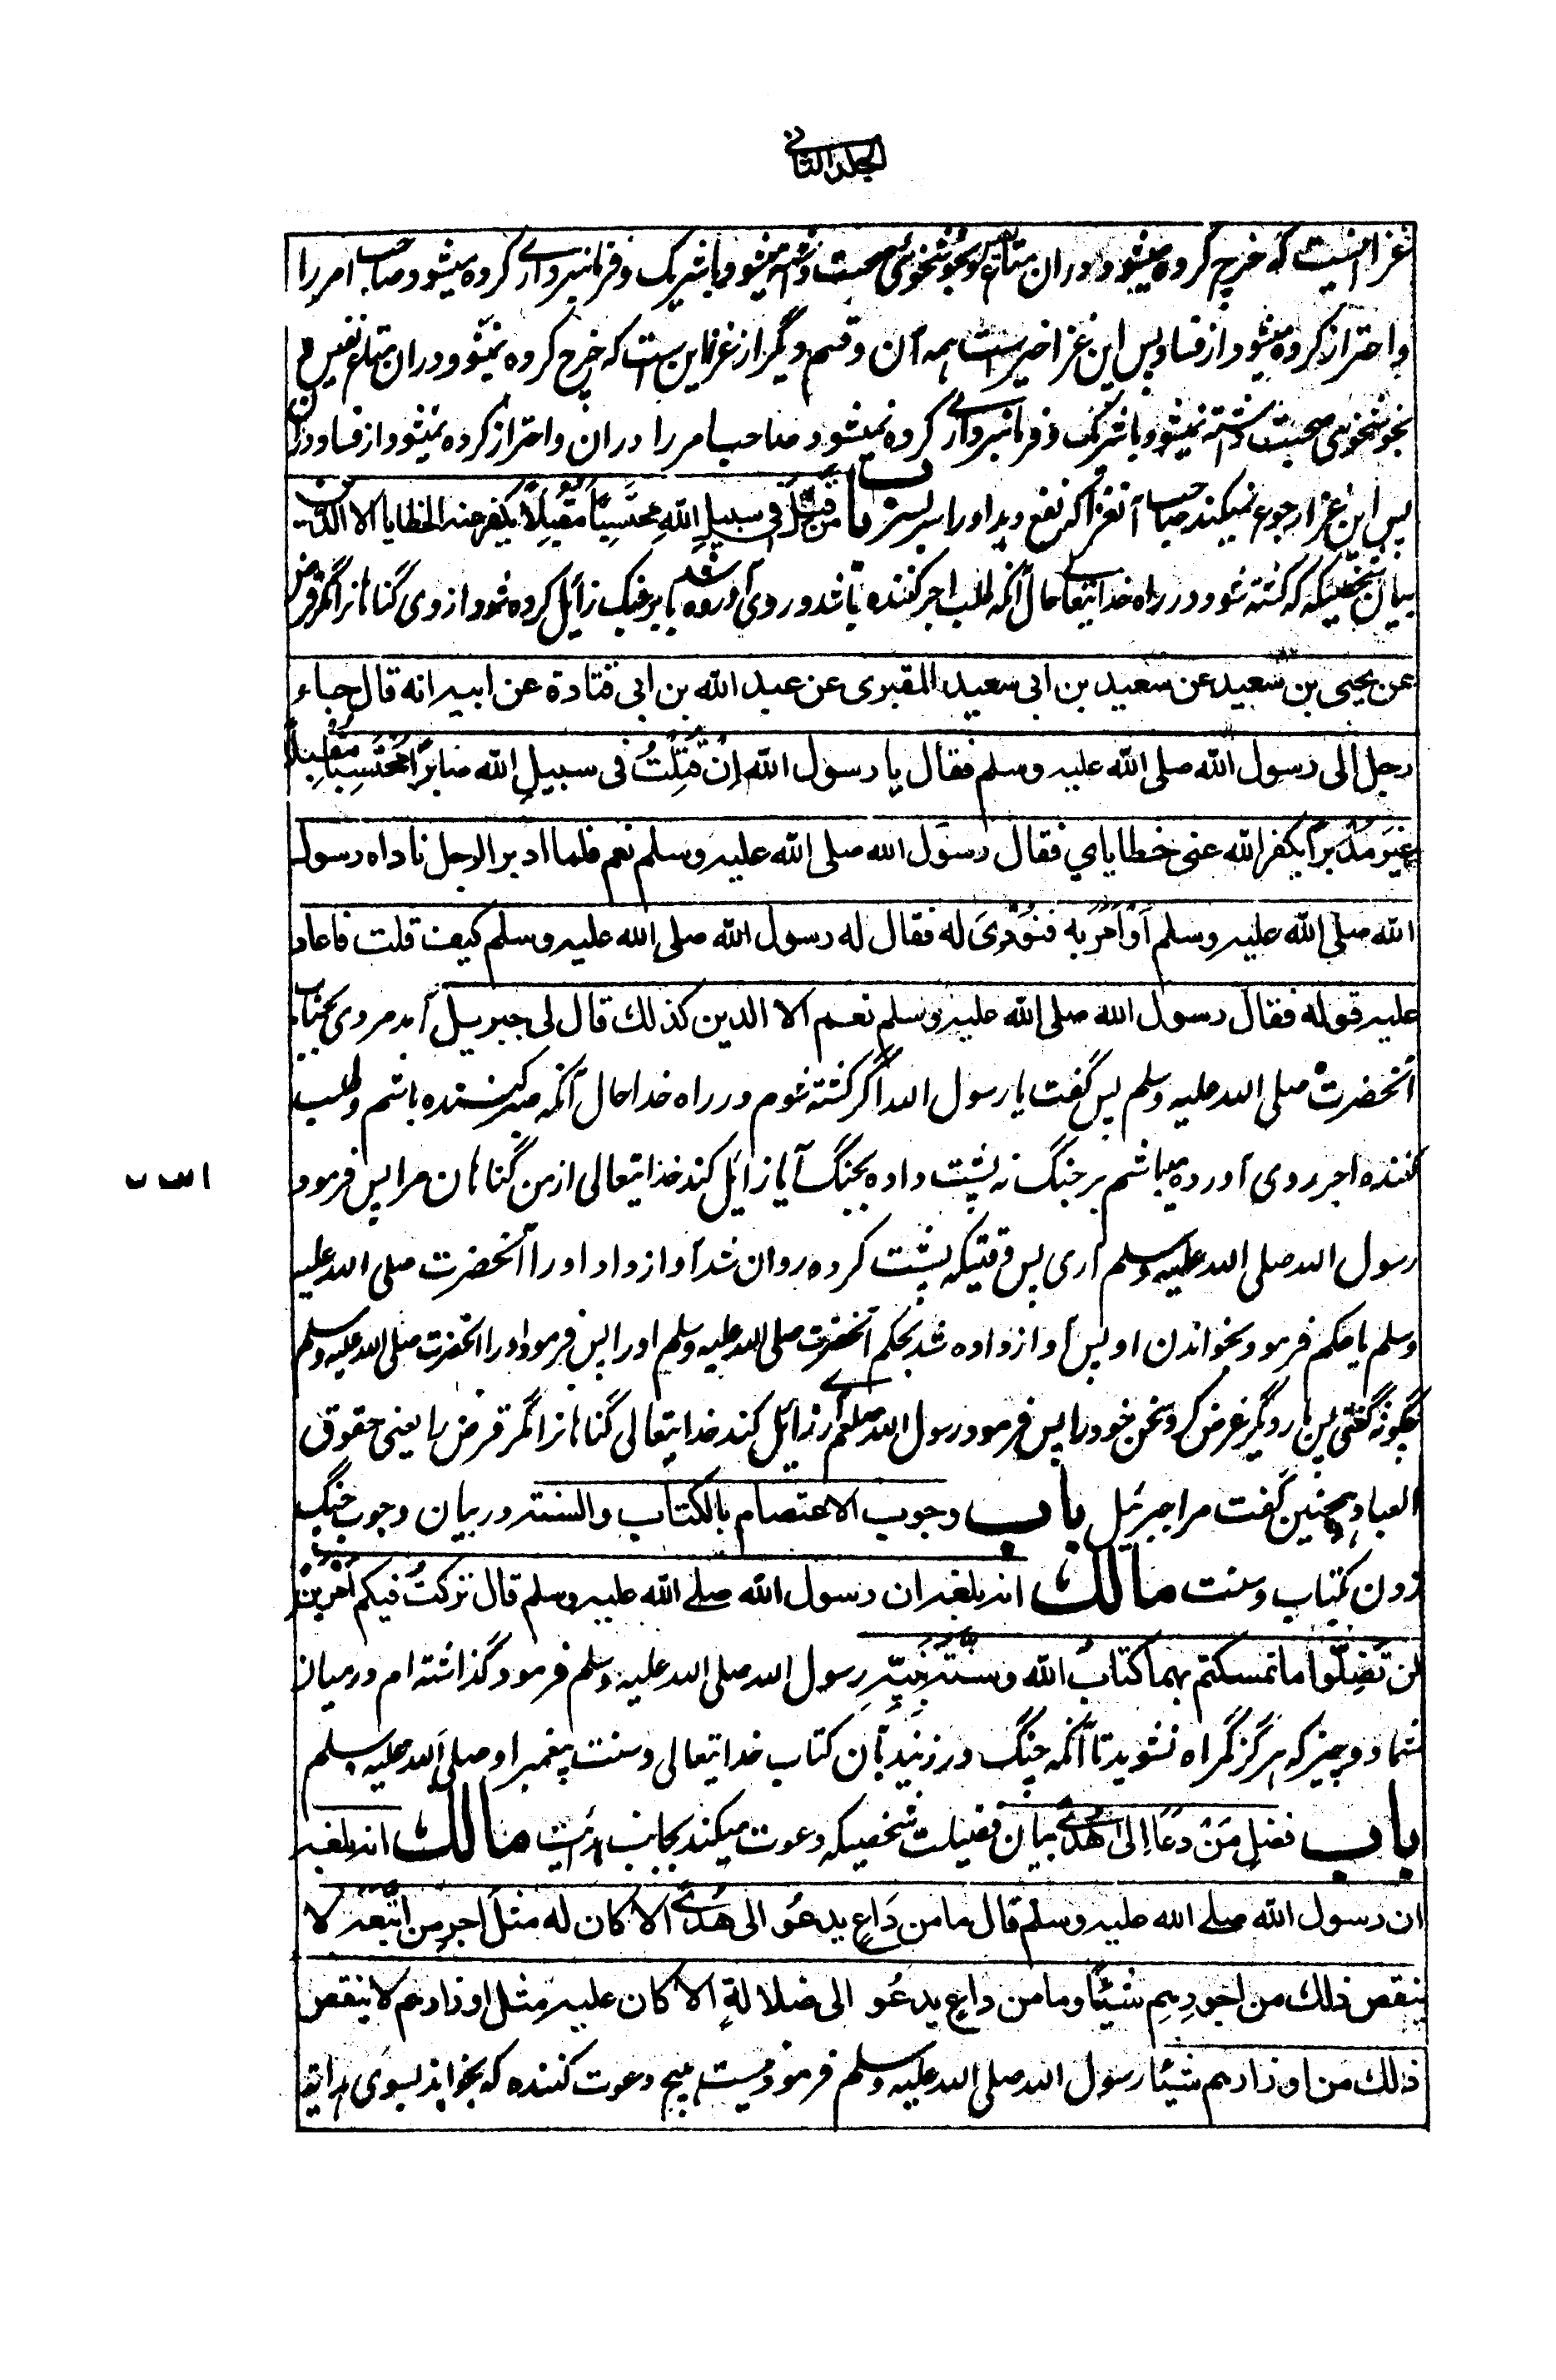 الجلد الثانی
غزا اینست که خرچ کرده میشود دران متاع نفیس و بخوشخوئی صحبت داشته میشود با شریک و فرمانبرداری کرده میشود صاحب امر را
و احتراز کرده میشود از فساد پس این غزا خیر ست همه آن و قسم دیگر از غزا این ست که خرچ کرده نمیشود دران متاع نفیس و
بخوشخوئی صحبت داشته نمیشود با شریک و فرمانبرداری کرده نمیشود صاحب امر را دران و احتراز کرده نمیشود از فساد دران
پس این غزا رجوع نمیکند صاحب آنغزا که نفع دهد او را سربسر باب من قتل فی سبیل الله محتسباً مقبلاً یکفر عنه الخطایا الا الدین
بیان شخصیکه که کشته شود در راه خدایتعالی حال آنکه طلب اجر کننده باشد و روی آورده باشد بر جنگ زایل کرده شود از وی گناهانرا مگر قرض
عن یحیی بن سعید عن سعید بن ابی سعید المقبری عن عبد الله بن ابی قتادة عن ابیه انه قال جاء
رجل الی رسول الله صلی الله علیه وسلم فقال یا رسول الله اِن قُتِلْتُ فی سبیلِ الله صابراً محتسباً مقبلاً
غیرَ مدبراً یکفر الله عنی خطایای فقال رسول الله صلی الله علیه وسلم نعم فلما ادبر الرجل ناداه رسول
الله صلی الله علیه وسلم اَو اَمَر به فنودِیَ له فقال له رسول الله صلی الله علیه وسلم کیف قلت فاعاد
علیه قوله فقال رسول الله صلی الله علیه وسلم نعم الا الدین کذلك قال لی جبریل آمد مردی بجناب
آنحضرت صلی الله علیه وسلم پس گفت یا رسول الله اگر کشته شوم در راه خدا حال آنکه صبر کننده باشم و طلب
کننده اجر روی آورده میباشم بر جنگ نه پشت داده بجنگ آیا زایل کند خدایتعالی از من گناهان مرا پس فرمود
رسول الله صلی الله علیه وسلم آری پس وقتیکه پشت کرده روان شد آواز داد او را آنحضرت صلی الله علیه
وسلم یا حکم فرمود بخواندن او پس آواز داده شد بحکم آنحضرت صلی الله علیه وسلم او را پس فرمود او را آنحضرت صلی الله علیه وسلم
چگونه گفتی پس بار دیگر عرض کرد سخن خود را پس فرمود رسول الله صلعم آری زایل کند خدایتعالی گناهانرا مگر قرض را یعنی حقوق
العباد همچنین گفت مرا جبرئیل باب وجوب الاعتصام بالکتاب والسنته در بیان وجوب چنگ
زدن بکتاب و سنت مالك انه بلغه ان رسول الله صلے الله علیه وسلم قال ترکتُ فیکم امرین
لن تضِلّوا ما تمسکتم بهما کتابُ الله وسنّتُ نبیّهِ رسول الله صلی الله علیه وسلم فرمود گذاشته ام درمیان
شما دو چیز که هرگز گمراه نشوید تا آنکه چنگ در زنید بآن کتاب خدایتعالی و سنت پیغمبر او صلی الله علیه وسلم
باب فضلِ مَنْ دَعَا اِلی هُدًی بیان فضیلت شخصیکه دعوت میکند بجانب هدایت مالك انه بلغه
ان رسول الله صلے الله علیه وسلم قال ما من دَاعٍ یدعُو الی هُدًی الا کان له مثل اجرِ من اتّبعه لا
ینقص ذلك من اجورِهِم شیئًا وما من داعٍ یدعُو الی ضلالةٍ الا کان علیه مثل اوزارهم لا ینقص
ذلك من اوزارهم شیئًا رسول الله صلی الله علیه وسلم فرمود نیست هیچ دعوت کننده که بخواند بسوی هدایت